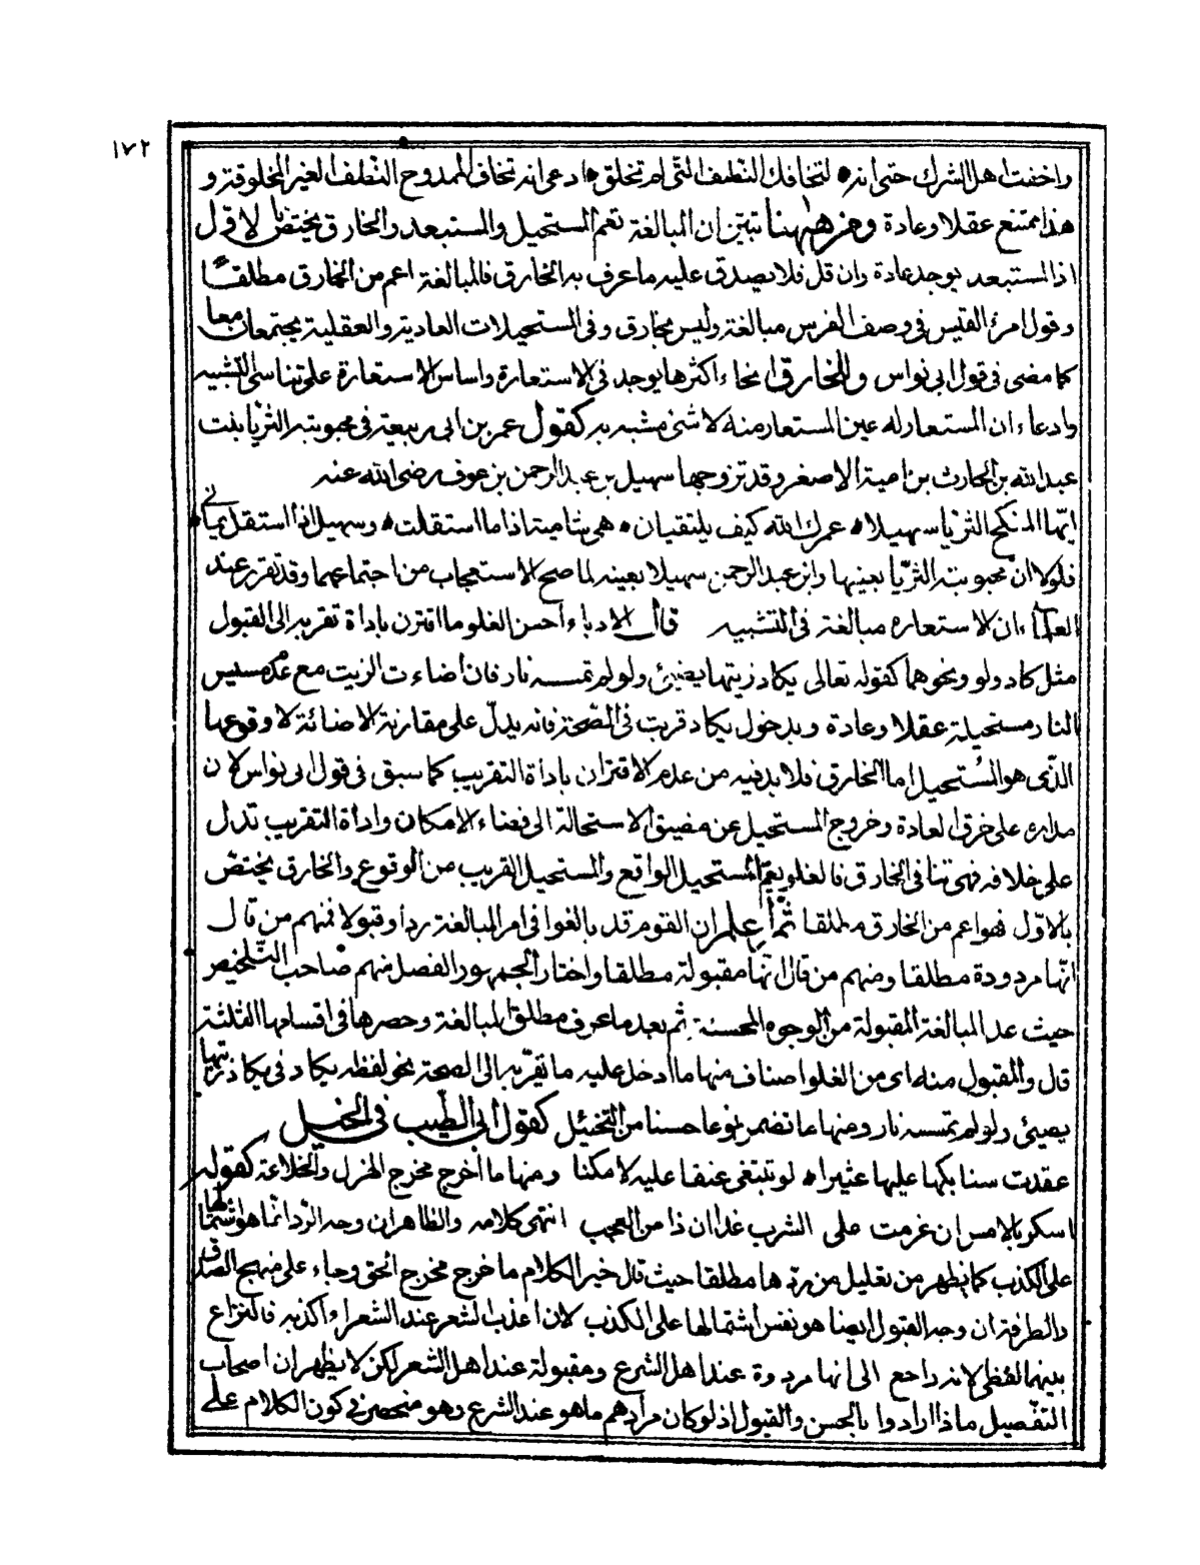 ١٧٢
واخفت اهل الشرك حتى انه لتخافك النطف التى لم تخلق ادعى انه تخاف الممدوح النطف الغير المخلوقة و
هذا ممتنع عقلا وعادة ومن ههنا تبين ان المبالغة تعم المستحيل والمستبعد والخارق يختص بالاول
اذ المستبعد يوجد عادة وان قل فلا يصدق عليه ما عرف به الخارق فالمبالغة اعم من الخارق مطلقا
وقول امرئ القيس فى وصف الفرس مبالغة وليس بخارق وفى المستحيلات العادية والعقلية يجتمعان معا
كما مضى فى قول ابى نواس وللخارق انحاء اكثرها يوجد فى الاستعارة واساس الاستعارة على تناسى التشبيه
وادعاء ان المستعار له عين المستعار منه لا شئ مشبه به كقول عمر بن ابى ربيعة فى محبوبته الثريا بنت
عبد الله بن الحارث بن امية الاصغر وقد تزوجها سهيل بن عبد الرحمن بن عوف رضى الله عنه
ايها المنكح الثريا سهيلا عمرك الله كيف يلتقيان هى شامية اذا ما استقلت وسهيل اذا استقل يمانى
فلولا ان محبوبته الثريا بعينها وابن عبد الرحمن سهيلا بعينه لما صح الاستعجاب من اجتماعهما وقد تقرر عند
العلماء ان الاستعارة مبالغة فى التشبيه قال الادباء احسن الغلو ما اقترن باداة تقربه الى القبول
مثل كاد ولو ونحوهما كقوله تعالى يكاد زيتها يضيئ ولو لم تمسسه نار فان اضاءت الزيت مع عدم مسيس
النار مستحيلة عقلا وعادة وبدخول يكاد قربت فى الصحة فانه يدل على مقارنة الاضائة لا وقوعها
الذى هو المستحيل اما الخارق فلا بد فيه من عدم الاقتران باداة التقريب كما سبق فى قول ابى نواس لان
مداره على خرق العادة وخروج المستحيل عن مضيق الاستحالة الى فضاء الامكان واداة التقريب تدل
على خلافه فهى تنافى الخارق فالغلو يعم المستحيل الواقع والمستحيل القريب من الوقوع والخارق يختص
بالاول فهو اعم من الخارق مطلقا ثم اعلم ان القوم قد بالغوا فى امر المبالغة ردا وقبولا فمنهم من قال
انها مردودة مطلقا ومنهم من قال انها مقبولة مطلقا واختار الجمهور الفصل منهم صاحب التلخيص
حيث عد المبالغة المقبولة من الوجوه المحسنة ثم بعد ما عرف مطلق المبالغة وحصرها فى اقسامها الثلثة
قال والمقبول منه اى من الغلو اصناف منها ما ادخل عليه ما تقربه الى الصحة نحو لفظه يكاد فى يكاد زيتها
يضيئ ولو لم تمسسه نار ومنها ما تضمن نوعا حسنا من التخييل كقول ابى الطيب فى الخيل
عقدت سنابكها عليها عثيرا لو تبتغى عنقا عليه لامكنا ومنها ما اخرج مخرج الهزل والخلاعة كقوله
اسكر بالامس ان عزمت على الشرب غدا ان ذا من العجب انتهى كلامه والظاهر ان وجه الرد انما هو اشتمالها
على الكذب كما يظهر من تعليل من ردها مطلقا حيث قال خير الكلام ما خرج مخرج الحق وجاء على منهج الصدق
والطرفة ان وجه القبول ايضا هو نفس اشتمالها على الكذب لان اعذب الشعر عند الشعراء اكذبه فالنزاع
بينهما لفظى لانه راجع الى انها مردودة عند اهل الشرع ومقبولة عند اهل الشعر لكن لا يظهر ان اصحاب
التفصيل ماذا ارادوا بالحسن والقبول اذ لو كان مرادهم ما هو عند الشرع وهو منحصر فى كون الكلام على